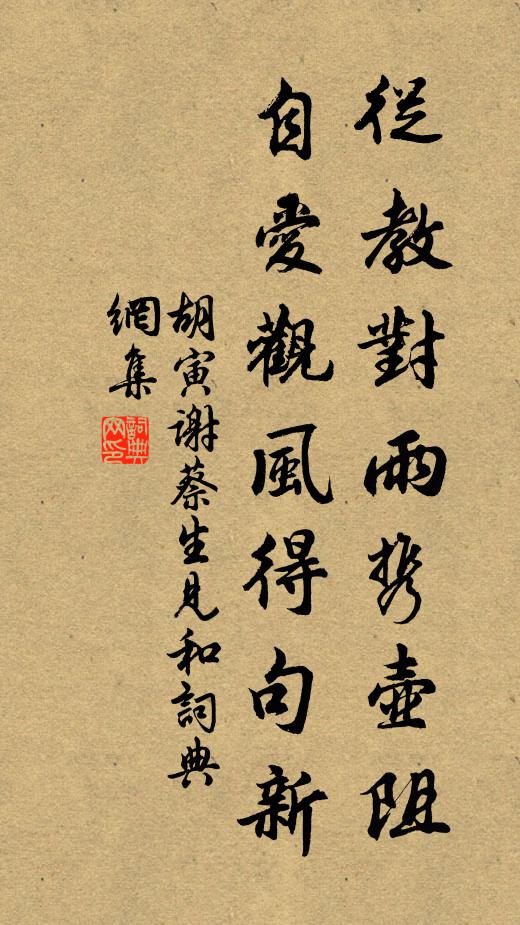 從教對雨攜壺阻
自愛觀風得句新
胡寅謝蔡生見和詞典
網集
詞典
网印